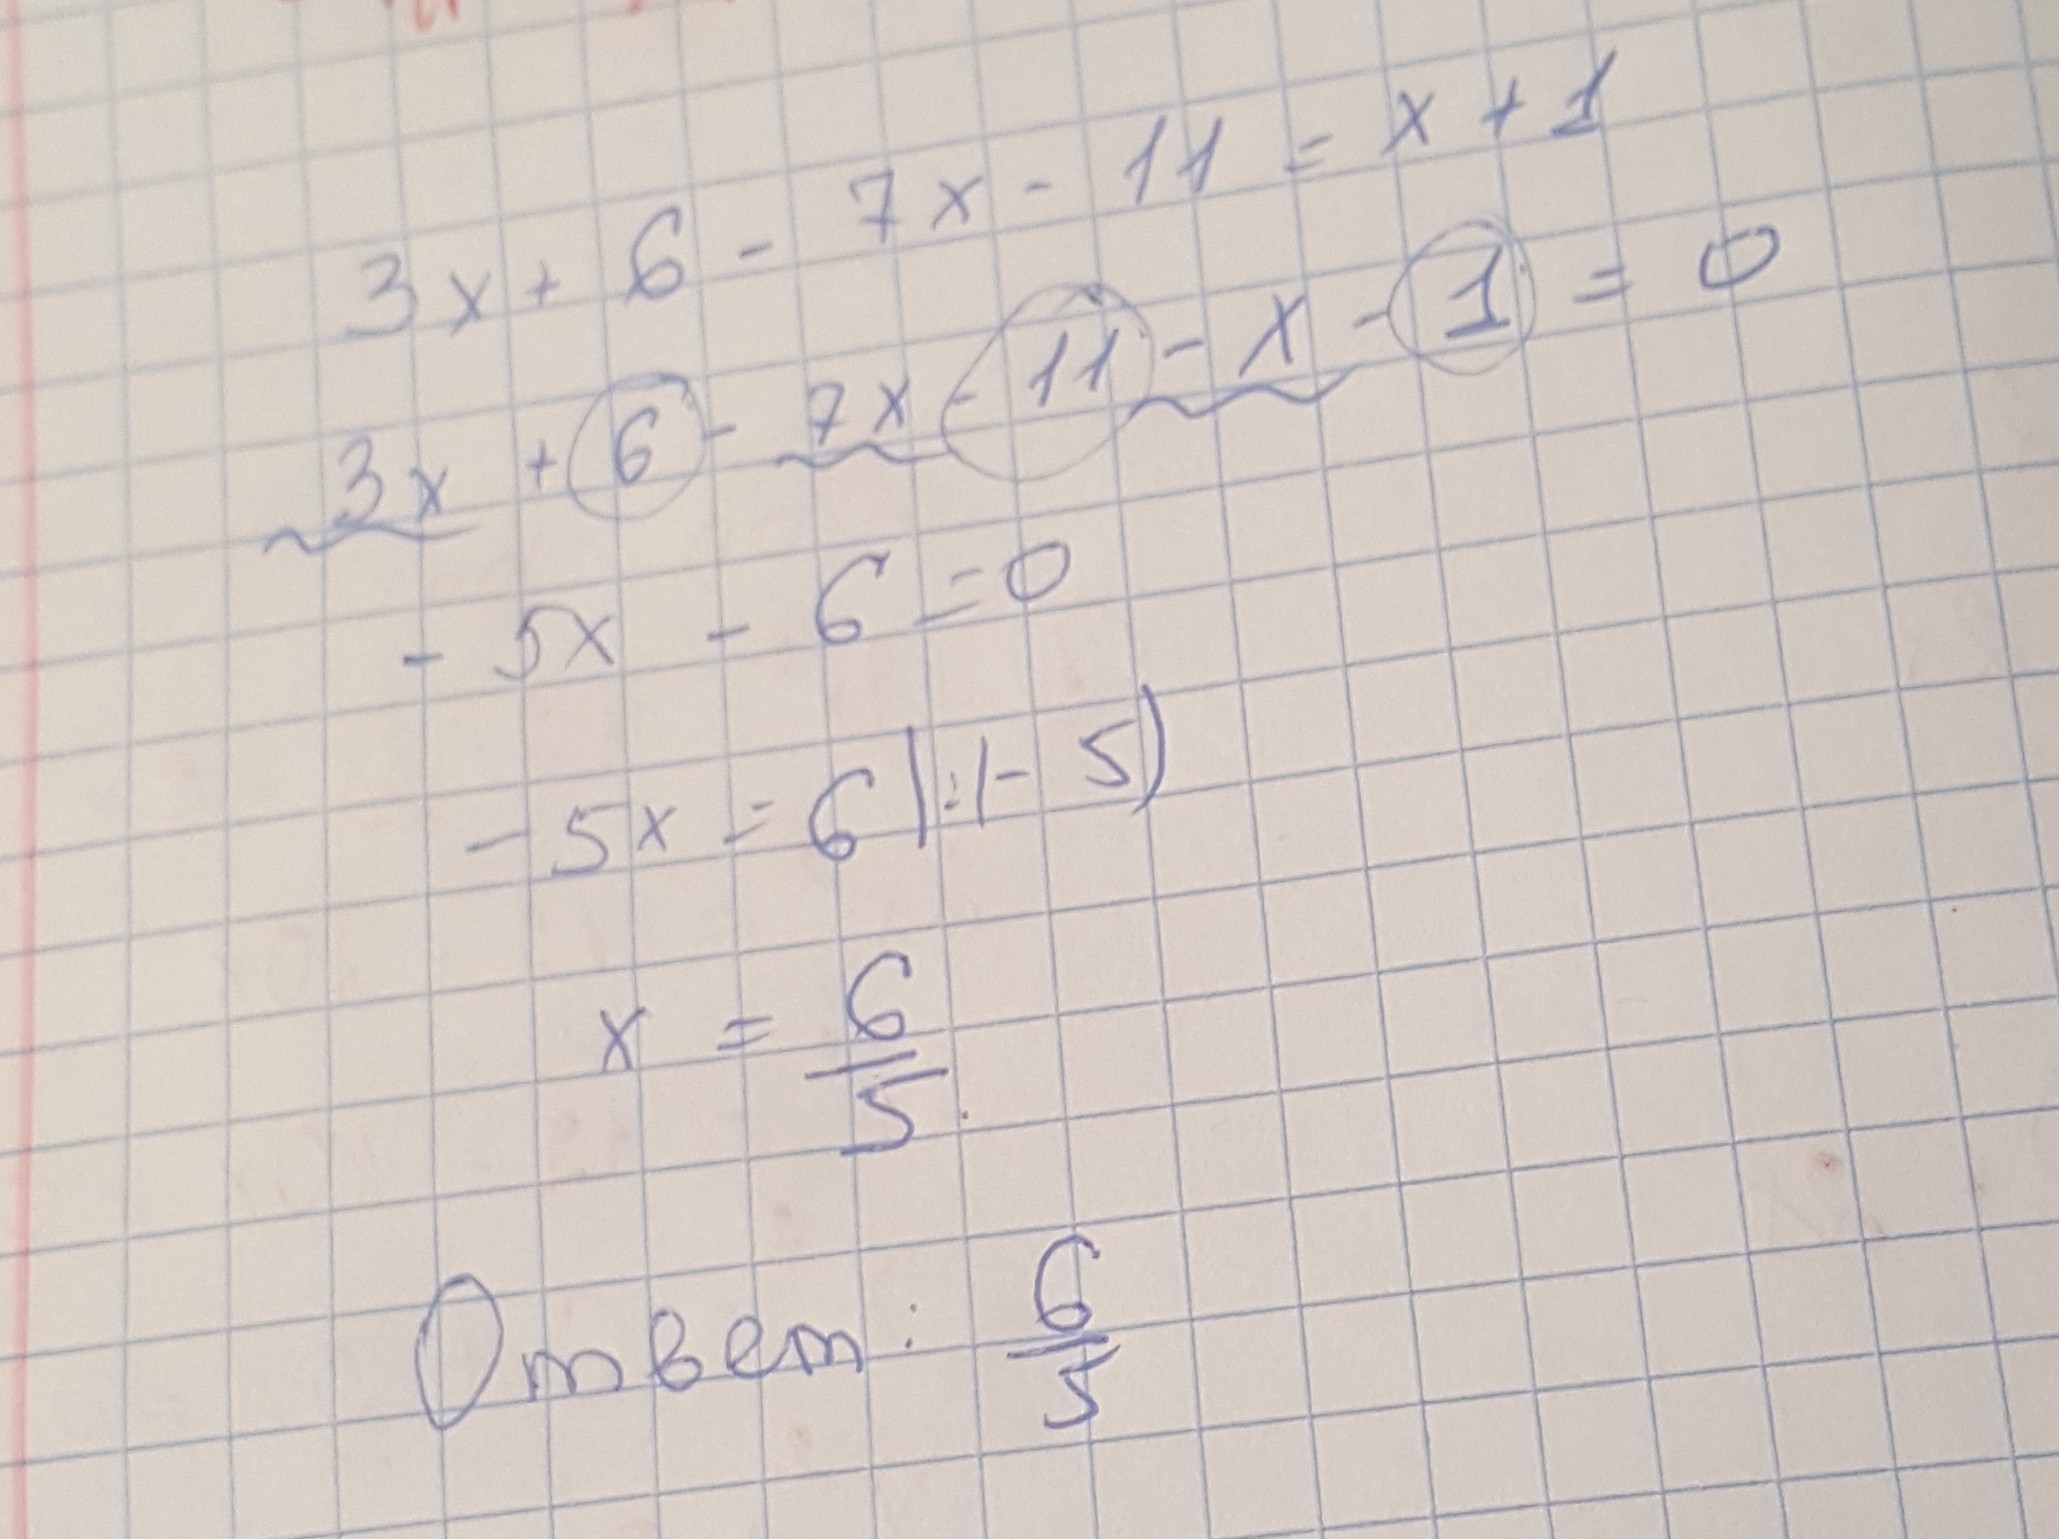 3x + 6 - 7x - 11 = x + 1
3x + 6 - 7x - 11 - x - 1 = 0
- 5x - 6 = 0
- 5x = 6 | : (- 5)
x = 6/5
Ответ: 6/5